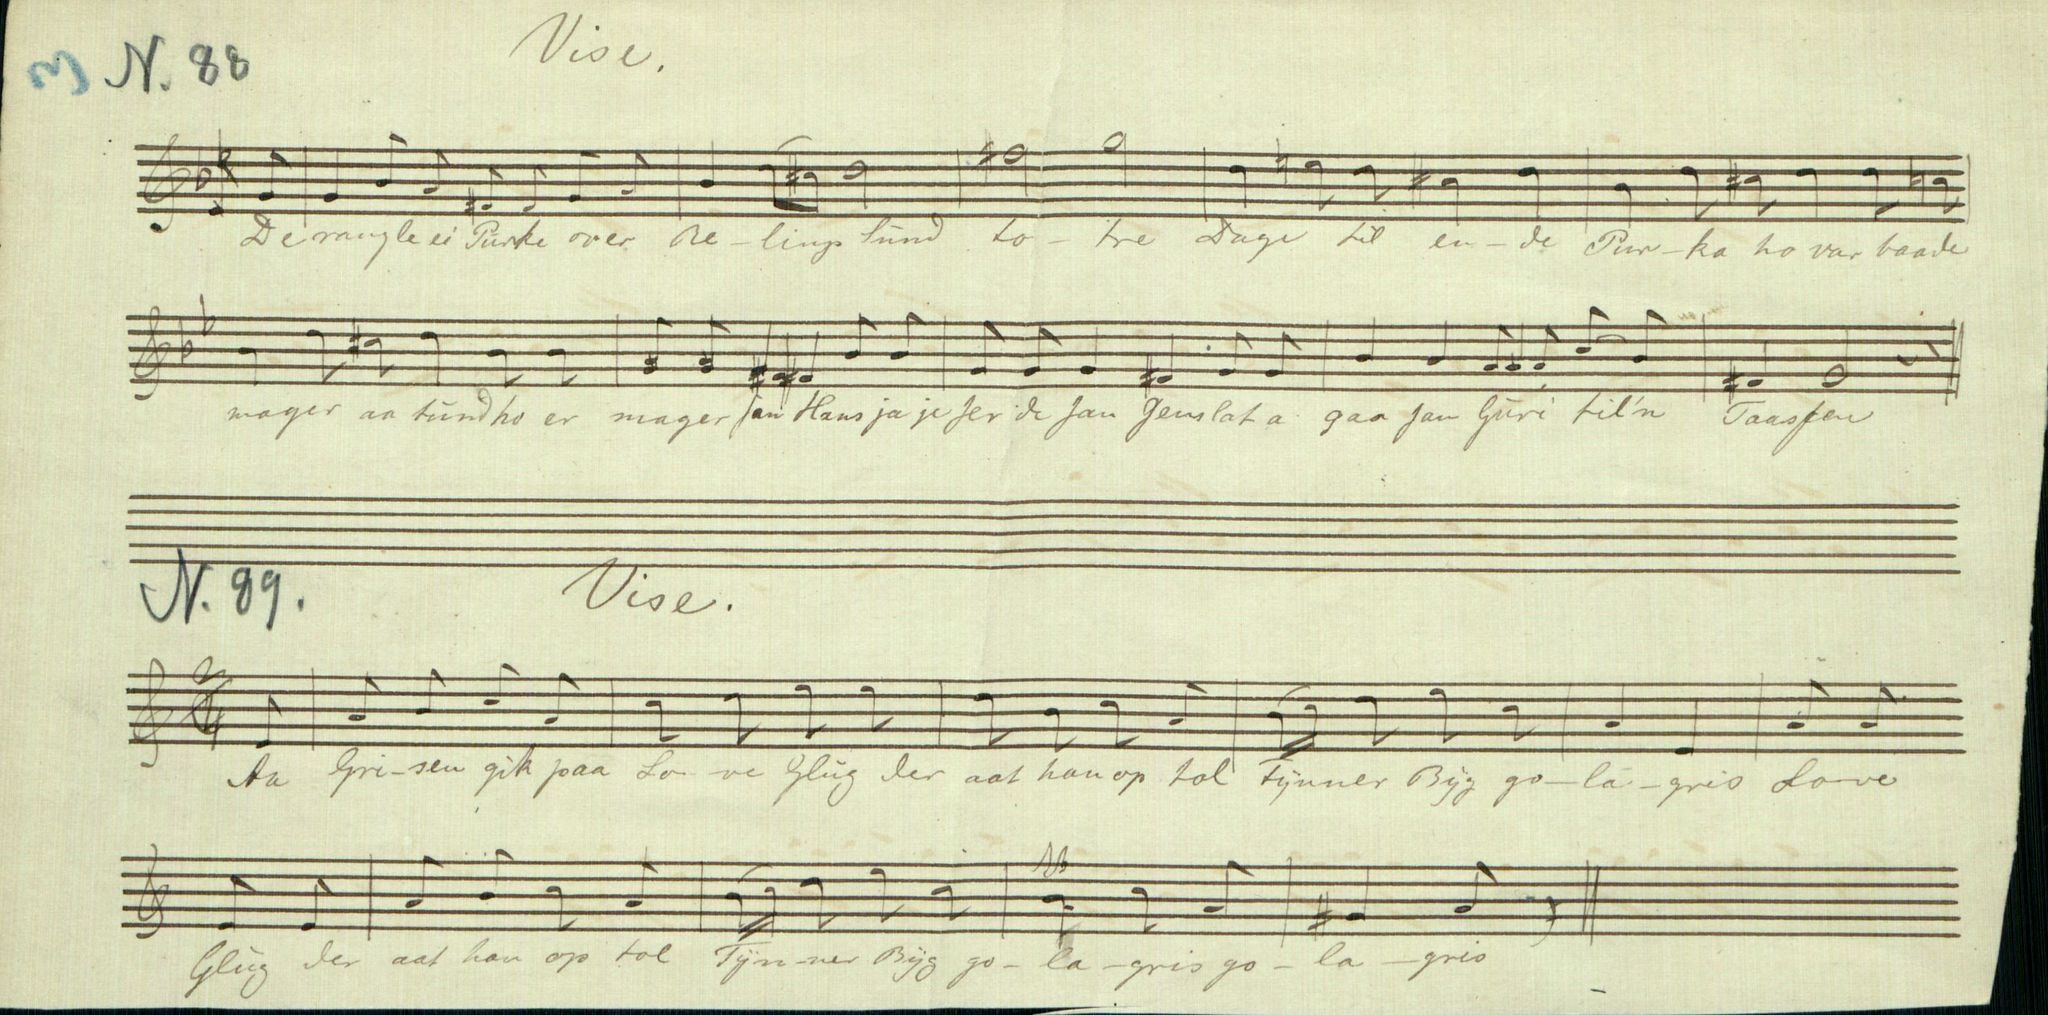 3) N. 88
Vise.
De rangle ei Purke over Re-lings Sund to-tre Dage til en-de Pur-ka ho var baade
mager aa tund ho er mager Jan Hans ja je ser de Jan Jens lat a gaa Jan Guri til'n Taassen
N. 89.
Vise.
Aa Gri-sen gik paa Lo-ve Glug der aat han op tol Tynner Byg go-la-gris Lo-ve
Glug der aat han op tol Tyn-ner Byg go-la-gris go-la-gris